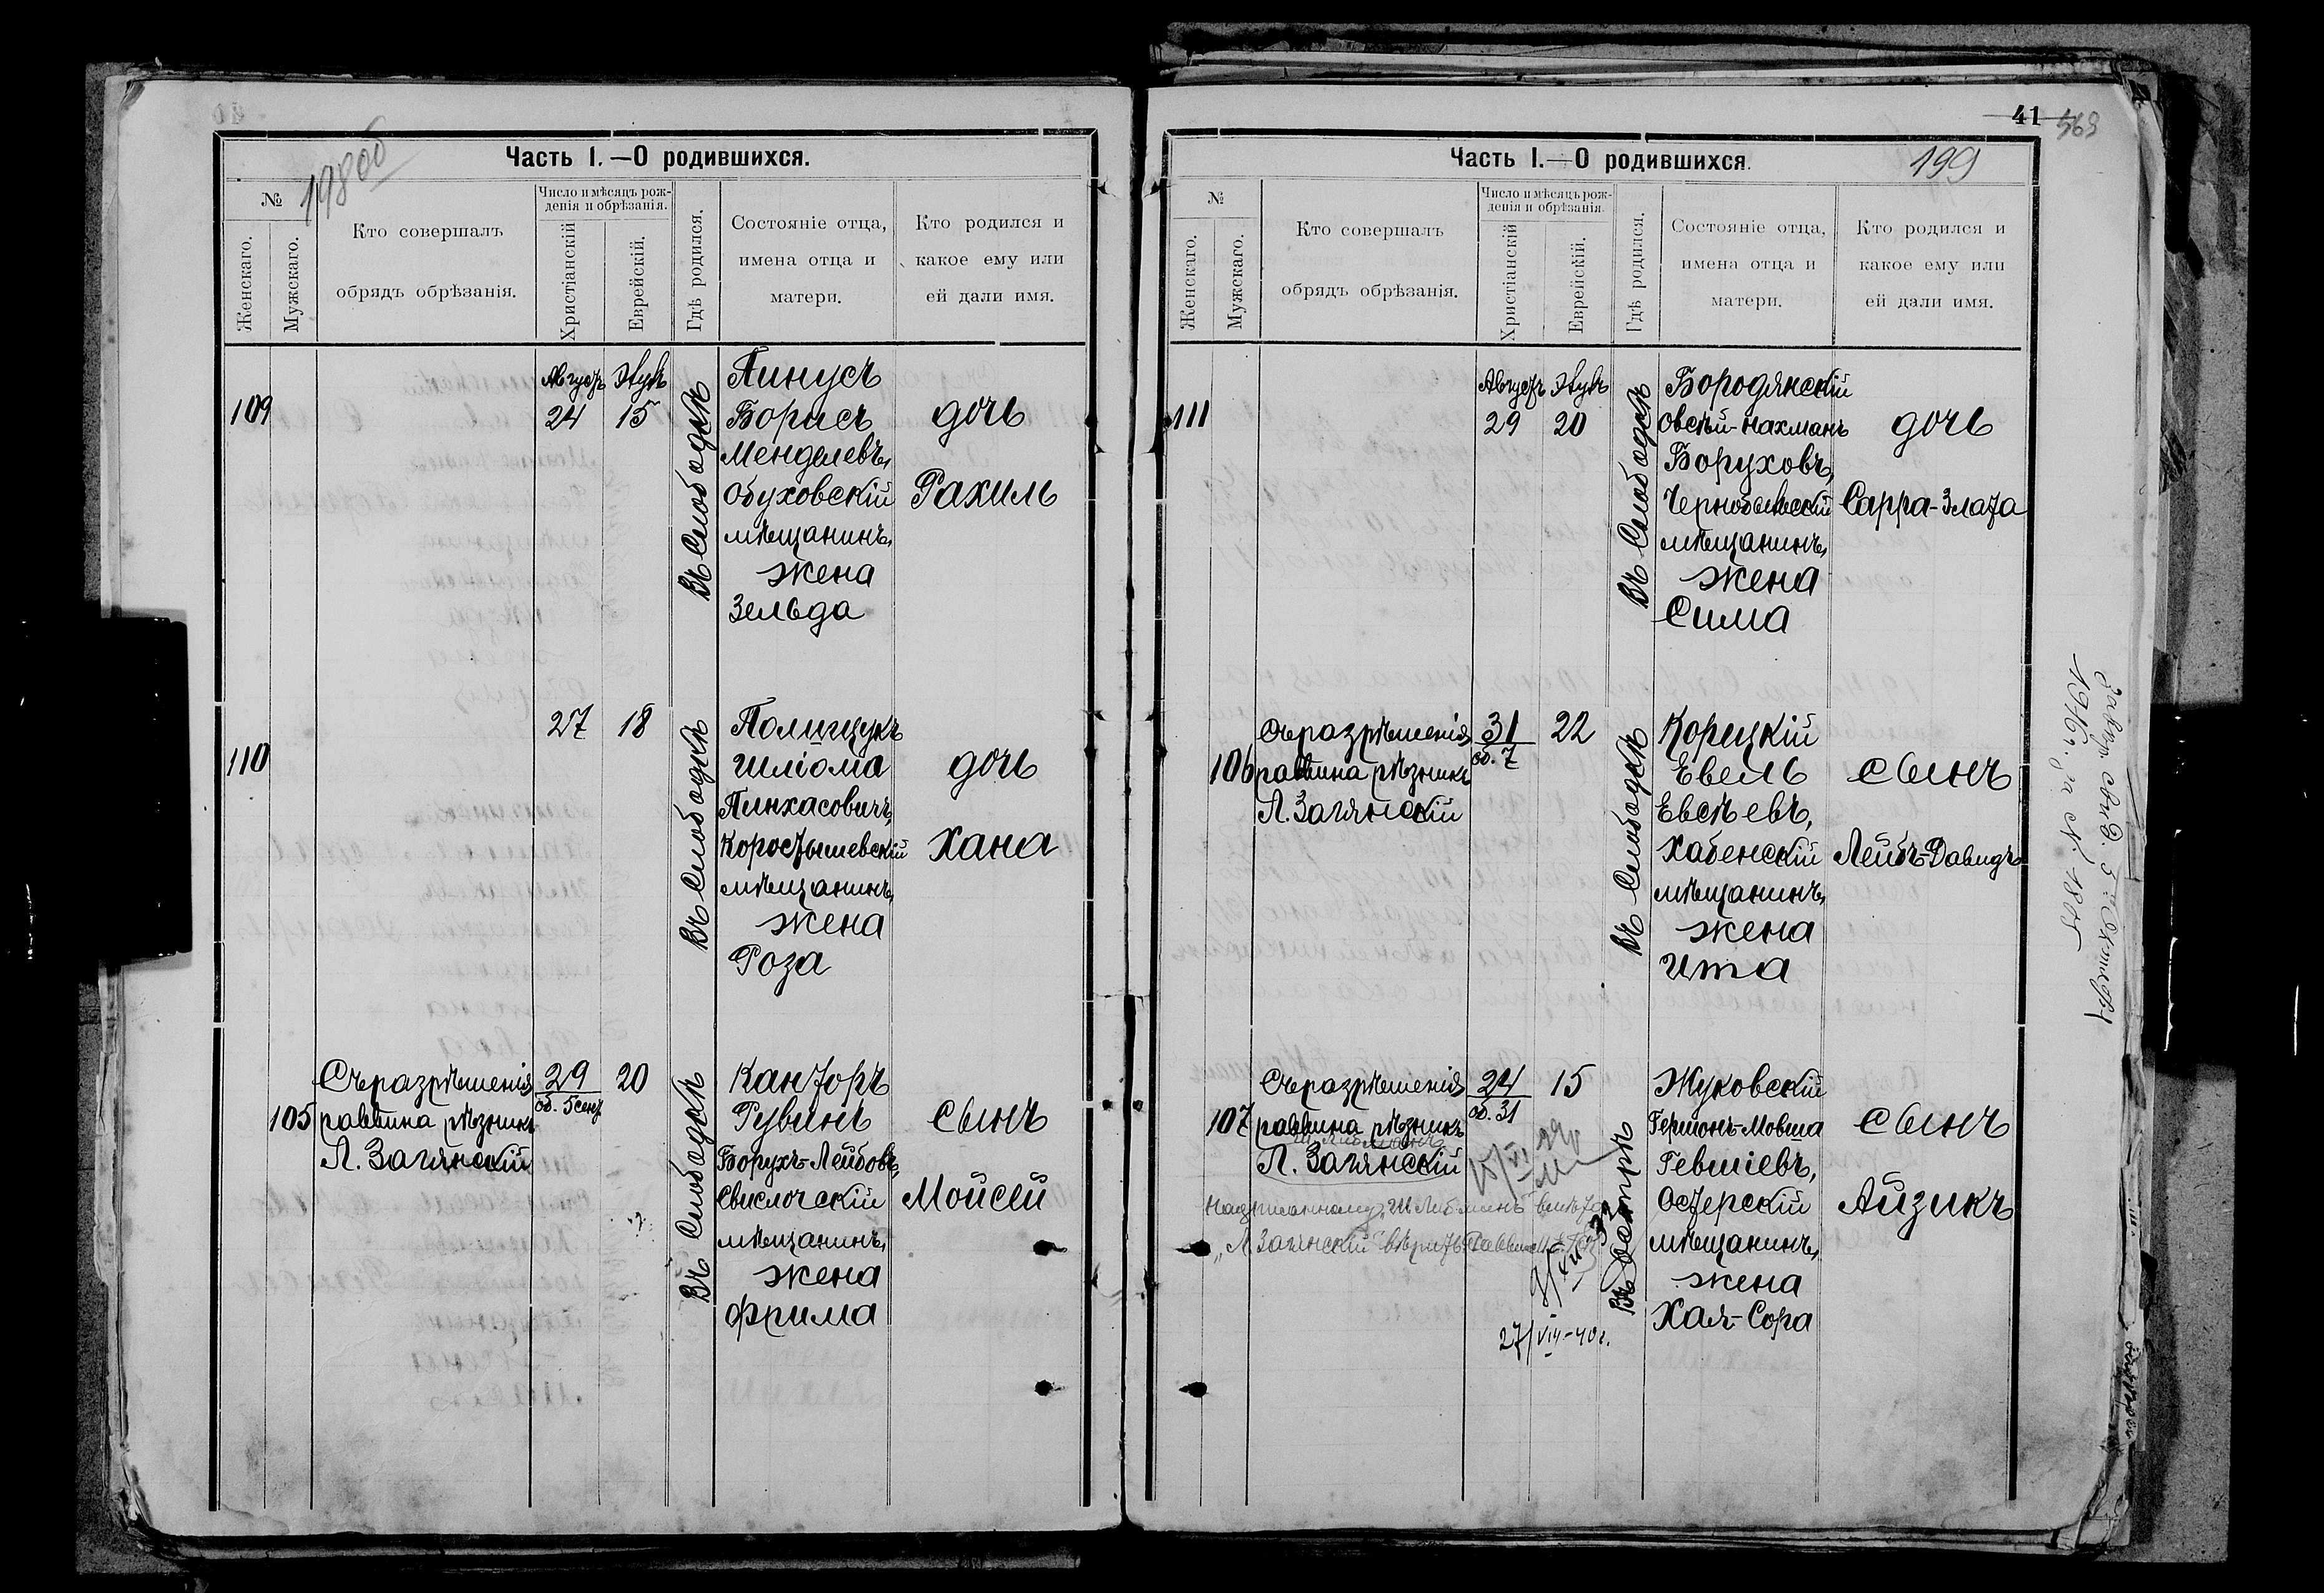 198об
Часть I. — О родившихся.
№
Женскаго.
Мужскаго.
Кто совершалъ
обрядъ обрѣзанія.
Число и мѣсяцъ рож-
денія и обрѣзанія.
Христіанскій
Еврейскій.
Гдѣ родился.
Состояніе отца,
имена отца и
матери.
Кто родился и
какое ему или
ей дали имя.
109
Августъ
24
15
Въ Слободкѣ
Пинусъ
Борисъ
Менделевъ,
Обуховскій
мѣщанинъ,
жена
Зельда
дочь
Рахиль
110
27
18
Въ Слободкѣ
Полищукъ
Шліома
Пинхасовичъ,
Коростышевскій
мѣщанинъ,
жена
Роза
дочь
Хана
105
Съ разрѣшенія
раввина рѣзникъ
Л. Загянскій
29
об. 5 сент
20
Въ Слободкѣ
Канторъ
Рувинъ
Борухъ-Лейбовъ,
Свислочскій
мѣщанинъ,
жена
Фрима
сынъ
Мойсей
41
199
Часть I. — О родившихся.
№
Женскаго.
Мужскаго.
Кто совершалъ
обрядъ обрѣзанія.
Число и мѣсяцъ рож-
денія и обрѣзанія.
Христіанскій
Еврейскій.
Гдѣ родился.
Состояніе отца,
имена отца и
матери.
Кто родился и
какое ему или
ей дали имя.
111
Августъ
29
20
Въ Слободкѣ
Бородянскій
Овсѣй-Нахманъ
Боруховъ,
Чернобыльскій
мѣщанинъ,
жена
Сима
дочь
Сарра-Злата
106
Съ разрѣшенія
раввина рѣзникъ
Л. Загянскій
31
об. 7
22
Въ Слободкѣ
Корецкій
Евель
Евсѣевъ,
Хабенскій
мѣщанинъ,
жена
Ита
сынъ
Лейбъ-Давидъ
107
Съ разрѣшенія
раввина рѣзникъ
Л. Загянскій
24
об. 31
15
Жуковскій
Гершонъ-Мовша
Гевшіевъ,
Остерскій
мѣщанинъ,
жена
Хая-Сора
сынъ
Айзикъ
27/VIII-40г.